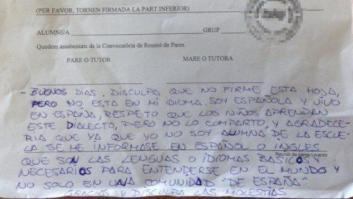 (PER FAVOR, TORNEN FIRMADA LA PART INFERIOR)
ALUMNE/A GRUP
Quedem assabentats de la Convocatòria de Reunió de Pares.
PARE O TUTOR MARE O TUTORA
- BUENOS DIAS, DISCULPA QUE NO FIRME ESTA HOJA,
PERO NO ESTA EN MI IDIOMA. SOY ESPAÑOLA Y VIVO
EN ESPAÑA, RESPETO QUE LOS NIÑOS APRENDAN
ESTE DIALECTO, PERO NO LO COMPARTO, Y AGRADECE-
RIA QUE YA QUE YO NO SOY ALUMNA DE LA ESCUE-
LA SE ME INFORMASE EN ESPAÑOL O INGLES
QUE SON LAS LENGUAS O IDIOMAS BASICOS Y
NECESARIOS PARA ENTENDERSE EN EL MUNDO Y
NO SOLO EN UNA COMUNIDAD "DE ESPAÑA"
GRACIAS Y DISCULPA LAS MOLESTIAS